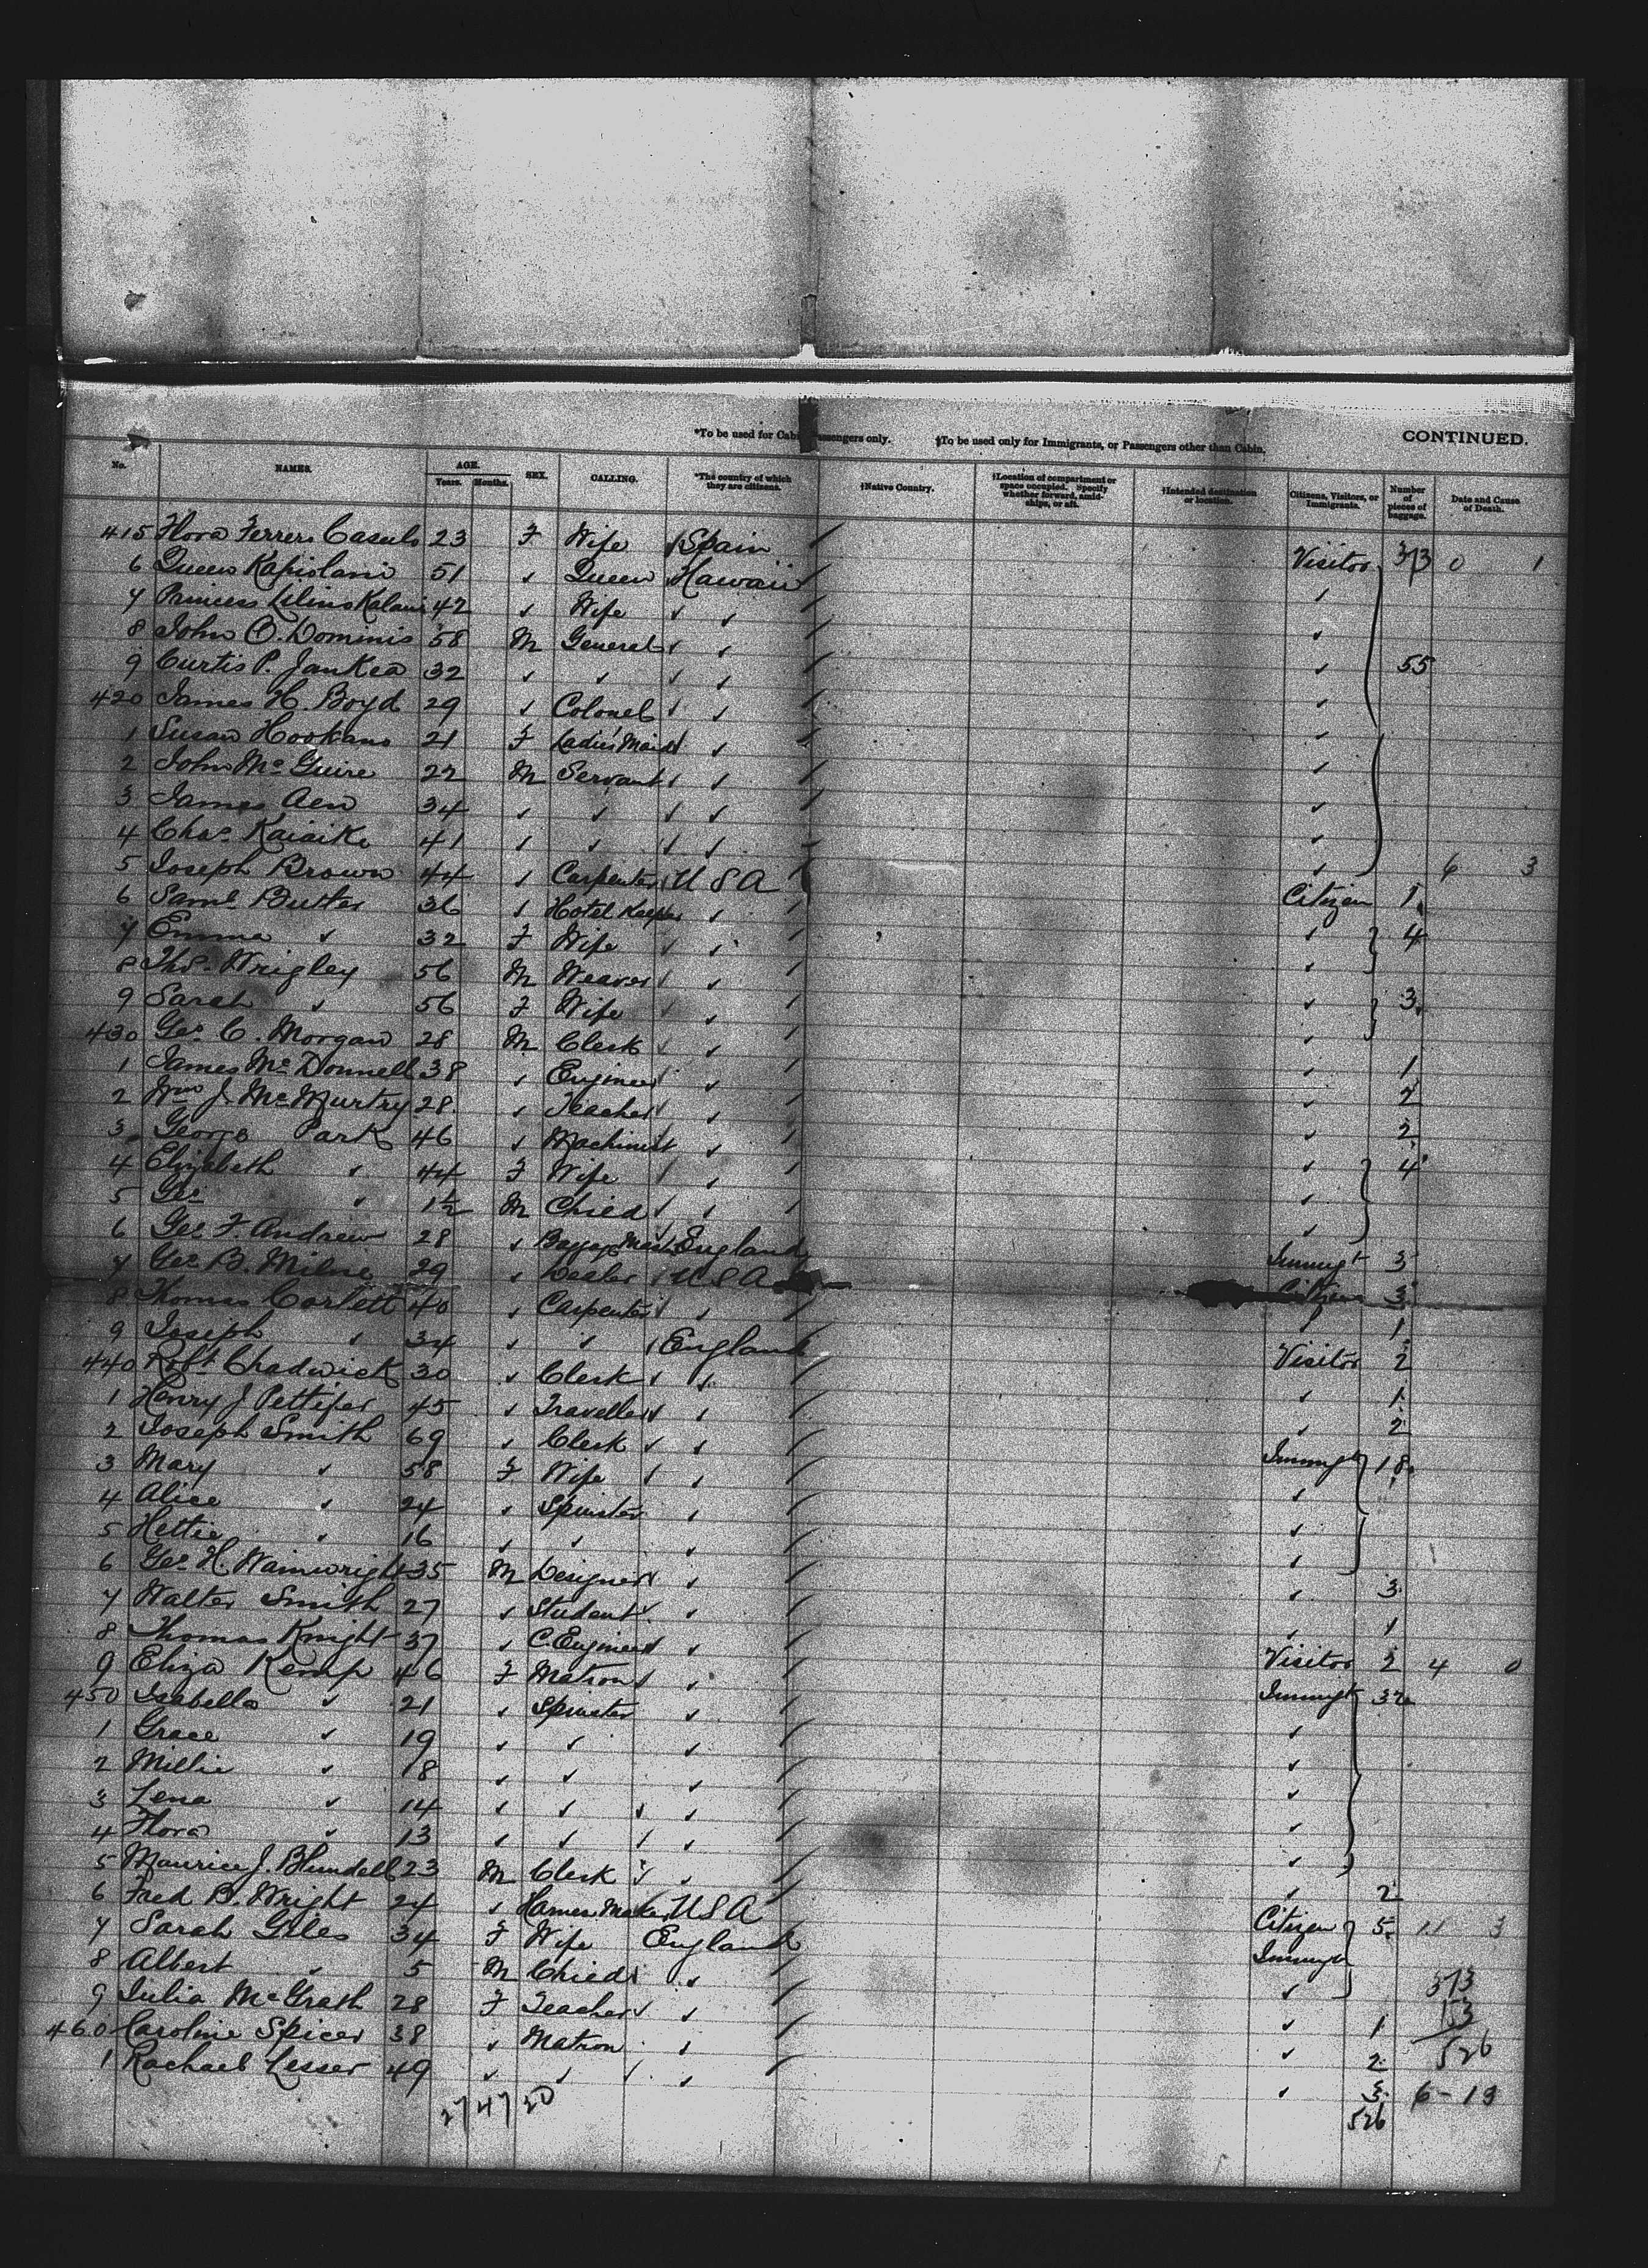 *To be used for Cabin Passengers only. ‡To be used only for Immigrants, or Passengers other than Cabin. CONTINUED.
No. NAMES. AGE. Years. Months. SEX. CALLING. *The country of which they are citizens. †Native Country. †Location of compartment or space occupied. Specify whether forward, amidships, or aft. †Intended destination or location. Citizens, Visitors, or Immigrants. Number of pieces of baggage. Date and Cause of Death.
415 Flora Ferrers Casuls 23 F Wife Spain Visitor 373 0 1
6 Queen Kapiolani 51 " Queen Hawaii "
7 Princess Lilino Kalani 42 " Wife " " "
8 John O. Dominis 58 M General " " " 55
9 Curtis P. Jaukea 32 " " " " "
420 James H. Boyd 29 " Colonel " " "
1 Susan Hookano 21 F Ladies Maid " "
2 John McGuire 22 M Servant " " "
3 James Aen 34 " " " " "
4 Chas. Kaiaike 41 " " " " " 6 3
5 Joseph Brown 44 " Carpenter U S A Citizen 1
6 Saml Butter 36 " Hotel Keeper " " 4
7 Emma " 32 F Wife " " "
8 Thos. Wrigley 56 M Weaver " " " 3
9 Sarah " 56 F Wife " " "
430 Geo. C. Morgan 28 M Clerk " " " 1
1 James McDonnell 38 " Engineer " " " 2
2 Wm J. McMurtry 28 " Teacher " " " 2
3 George Park 46 " Machinist " " 4
4 Elizabeth " 44 F Wife " " "
5 Geo " 1½ M Chied " " "
6 Geo. F. Andrew 28 " Baggage Mastr England Immigt 3
7 Geo B. Milne 29 " Dealer U S A Citizen 3
8 Thomas Corlett 40 " Carpenter " " " 1
9 Joseph " 34 " " England Visitor 2
440 Robt Chadwick 30 " Clerk " " " 1
1 Henry J Pettifer 45 " Traveller " " " 2
2 Joseph Smith 69 " Clerk " " Immigt 18
3 Mary " 58 F Wife " " "
4 Alice " 24 " Spinster " "
5 Hettie " 16 " " " "
6 Geo H. Wainwright 35 M Designer " " 3
7 Walter Smith 27 " Student " " 1
8 Thomas Knight 37 " C. Engineer " Visitor 2 4 0
9 Eliza Kemp 46 F Matron " " Immigt 32
450 Isabella " 21 " Spinster " "
1 Grace " 19 " " " "
2 Millie " 18 " " " "
3 Lena " 14 " " " " "
4 Flora " 13 " " " " "
5 Maurice J. Blundell 23 M Clerk " " " 2
6 Fred B. Wright 24 " Harnes Maker U S A Citizen 5 11 3
7 Sarah Giles 34 F Wife England Immigt
8 Albert " 5 M Chied " " 373
9 Julia McGrath 28 F Teacher " " " 1 13
460 Caroline Spicer 38 " Matron " " 2 526
1 Rachael Lesser 49 " " " " " 3 6-13
27 47 20 526